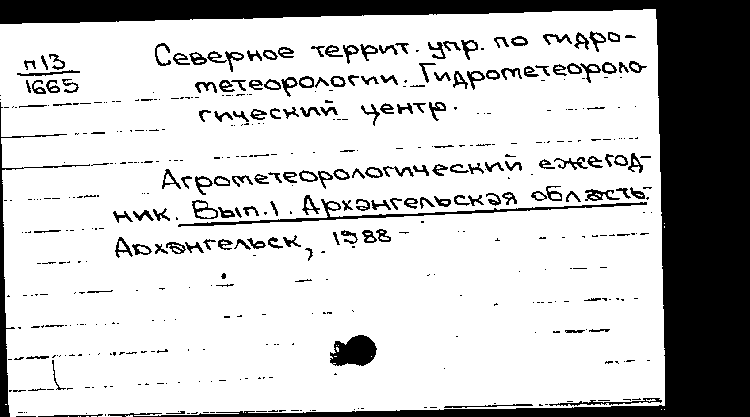 п13
1665
Северное террит. упр. по гидро-
метеорологии. Гидрометеороло
гический центр.
Агрометеорологический ежегод-
ник. Вып.1. Архангельская область.
Архангельск, 1988 -